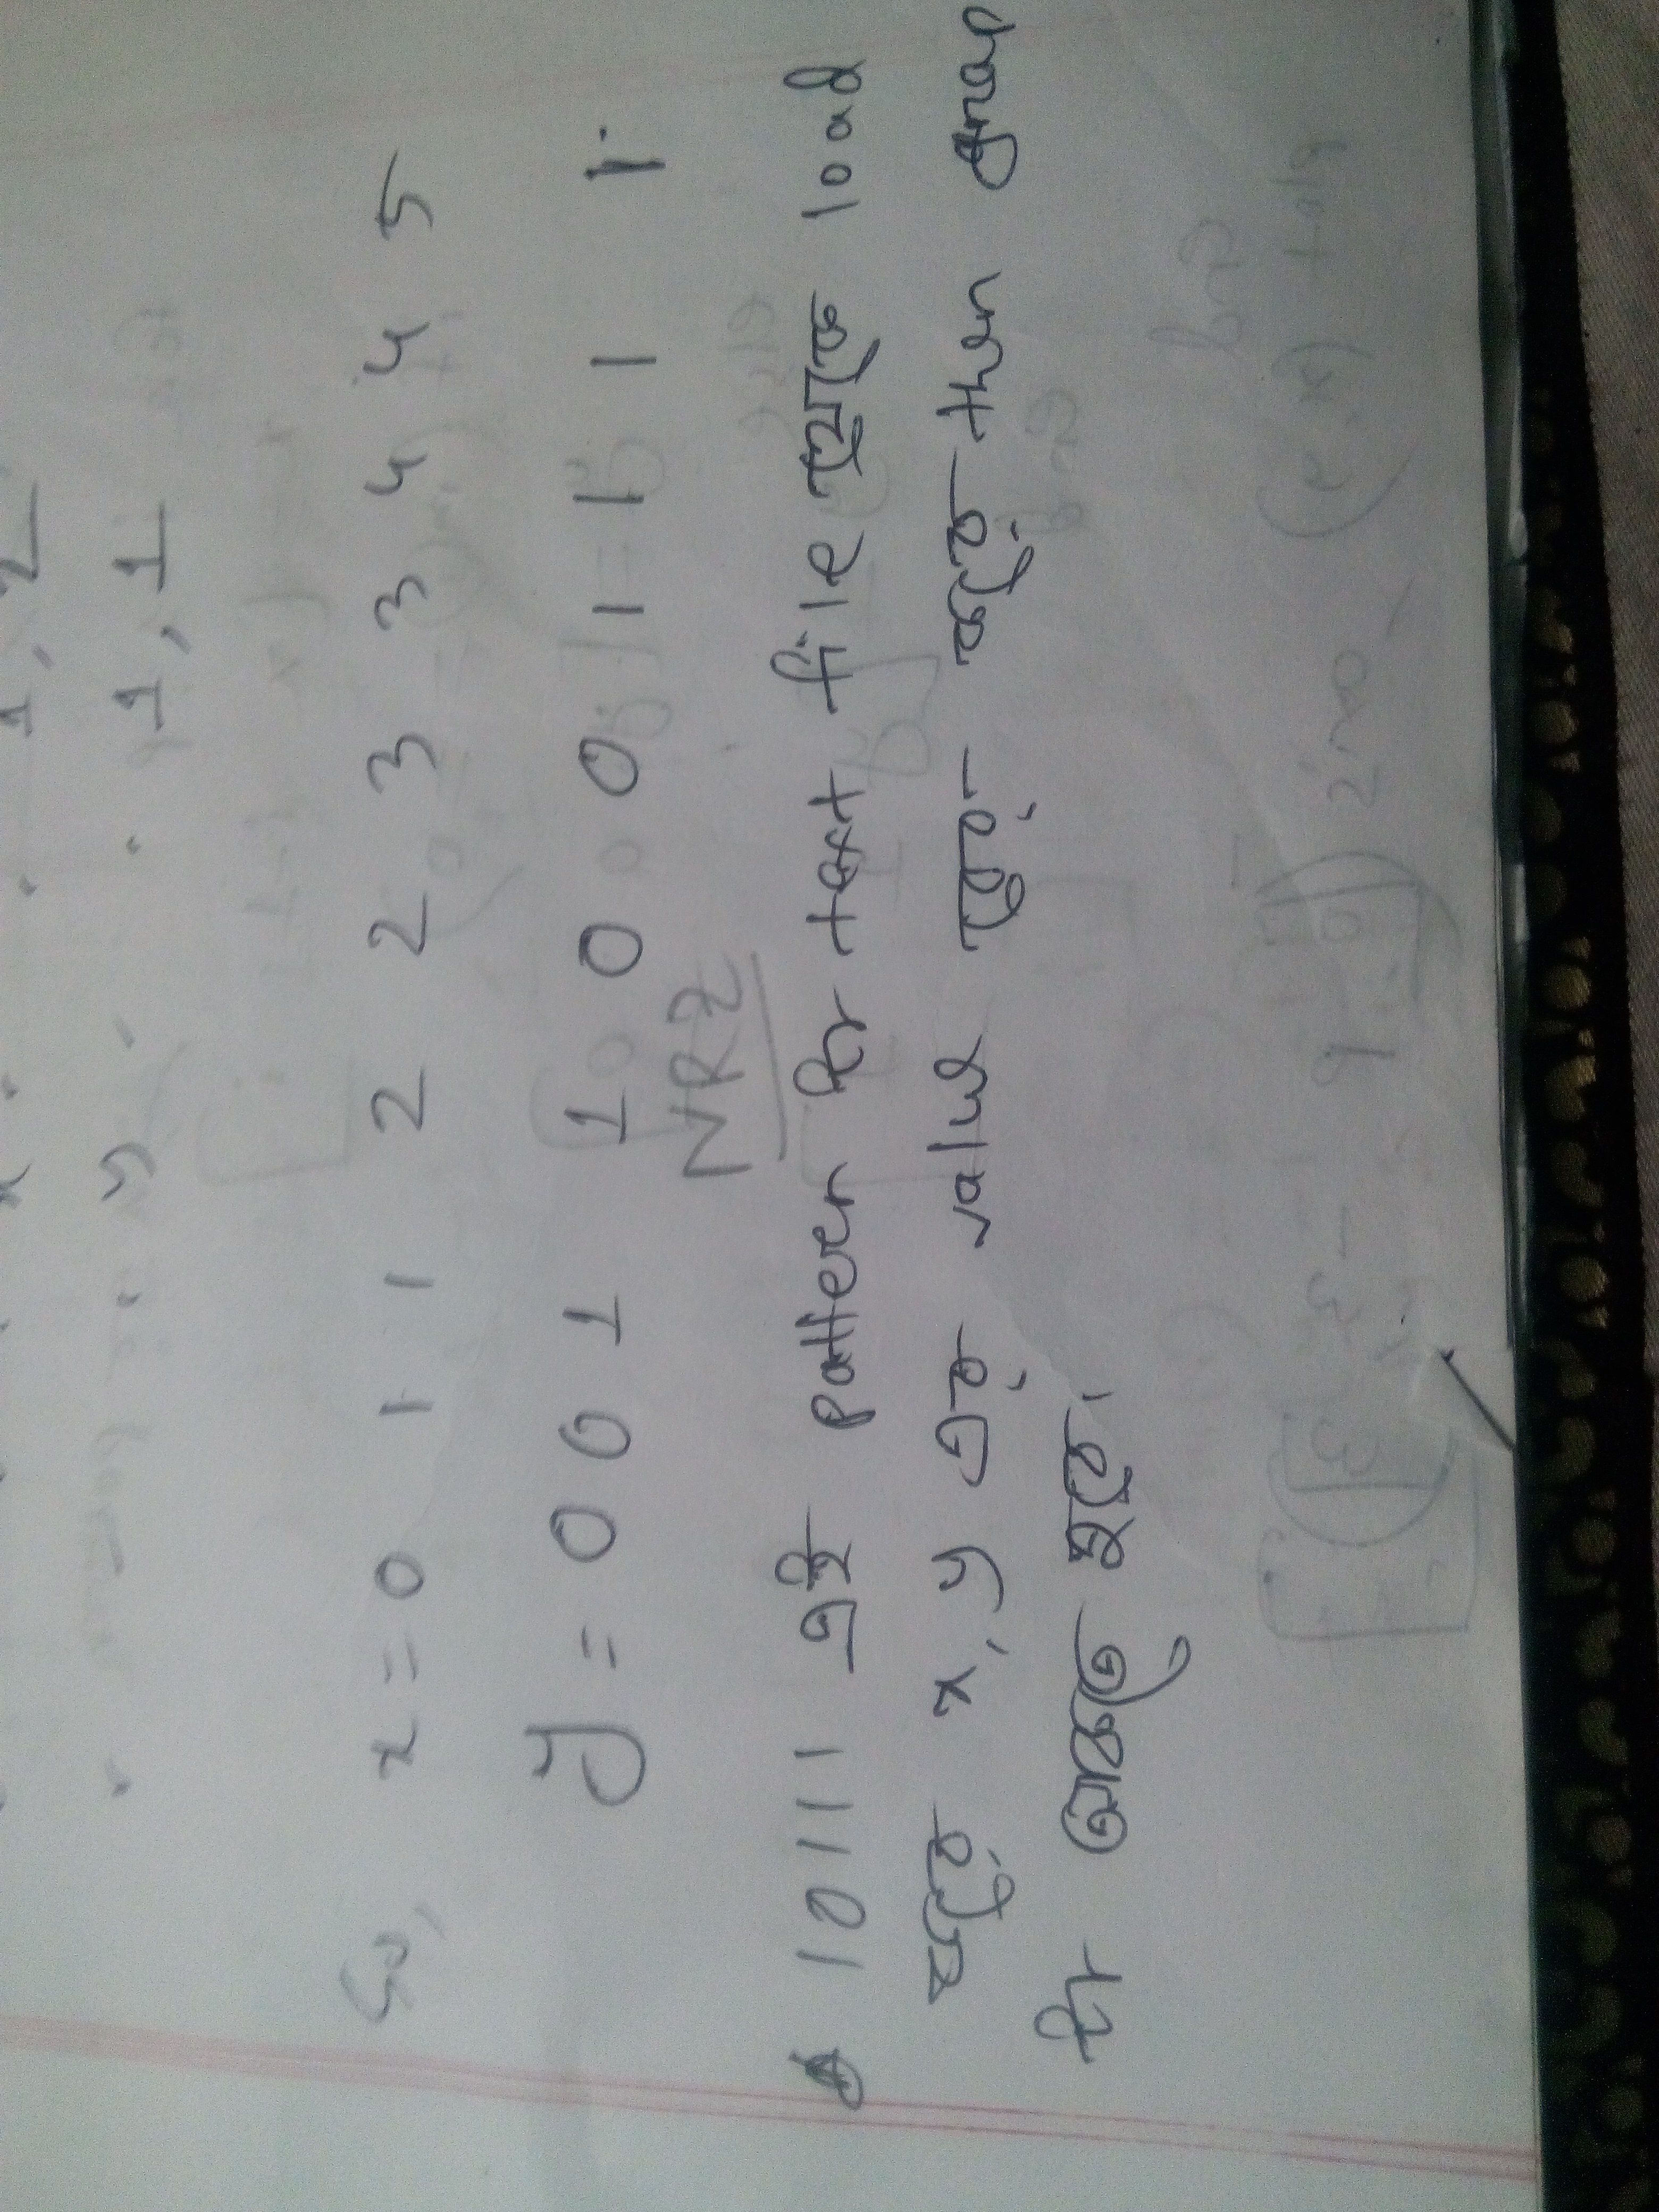 x 1, 2
y 1, 1
So, x = 0 1 1 2 2 3 3 4 4 5
y = 0 0 1 1 0 0 1 1 1 1
NRZ
10111 এই pattern টা text file থেকে load
করে x, y এর value বের করে then grap
টা আকতে হবে।